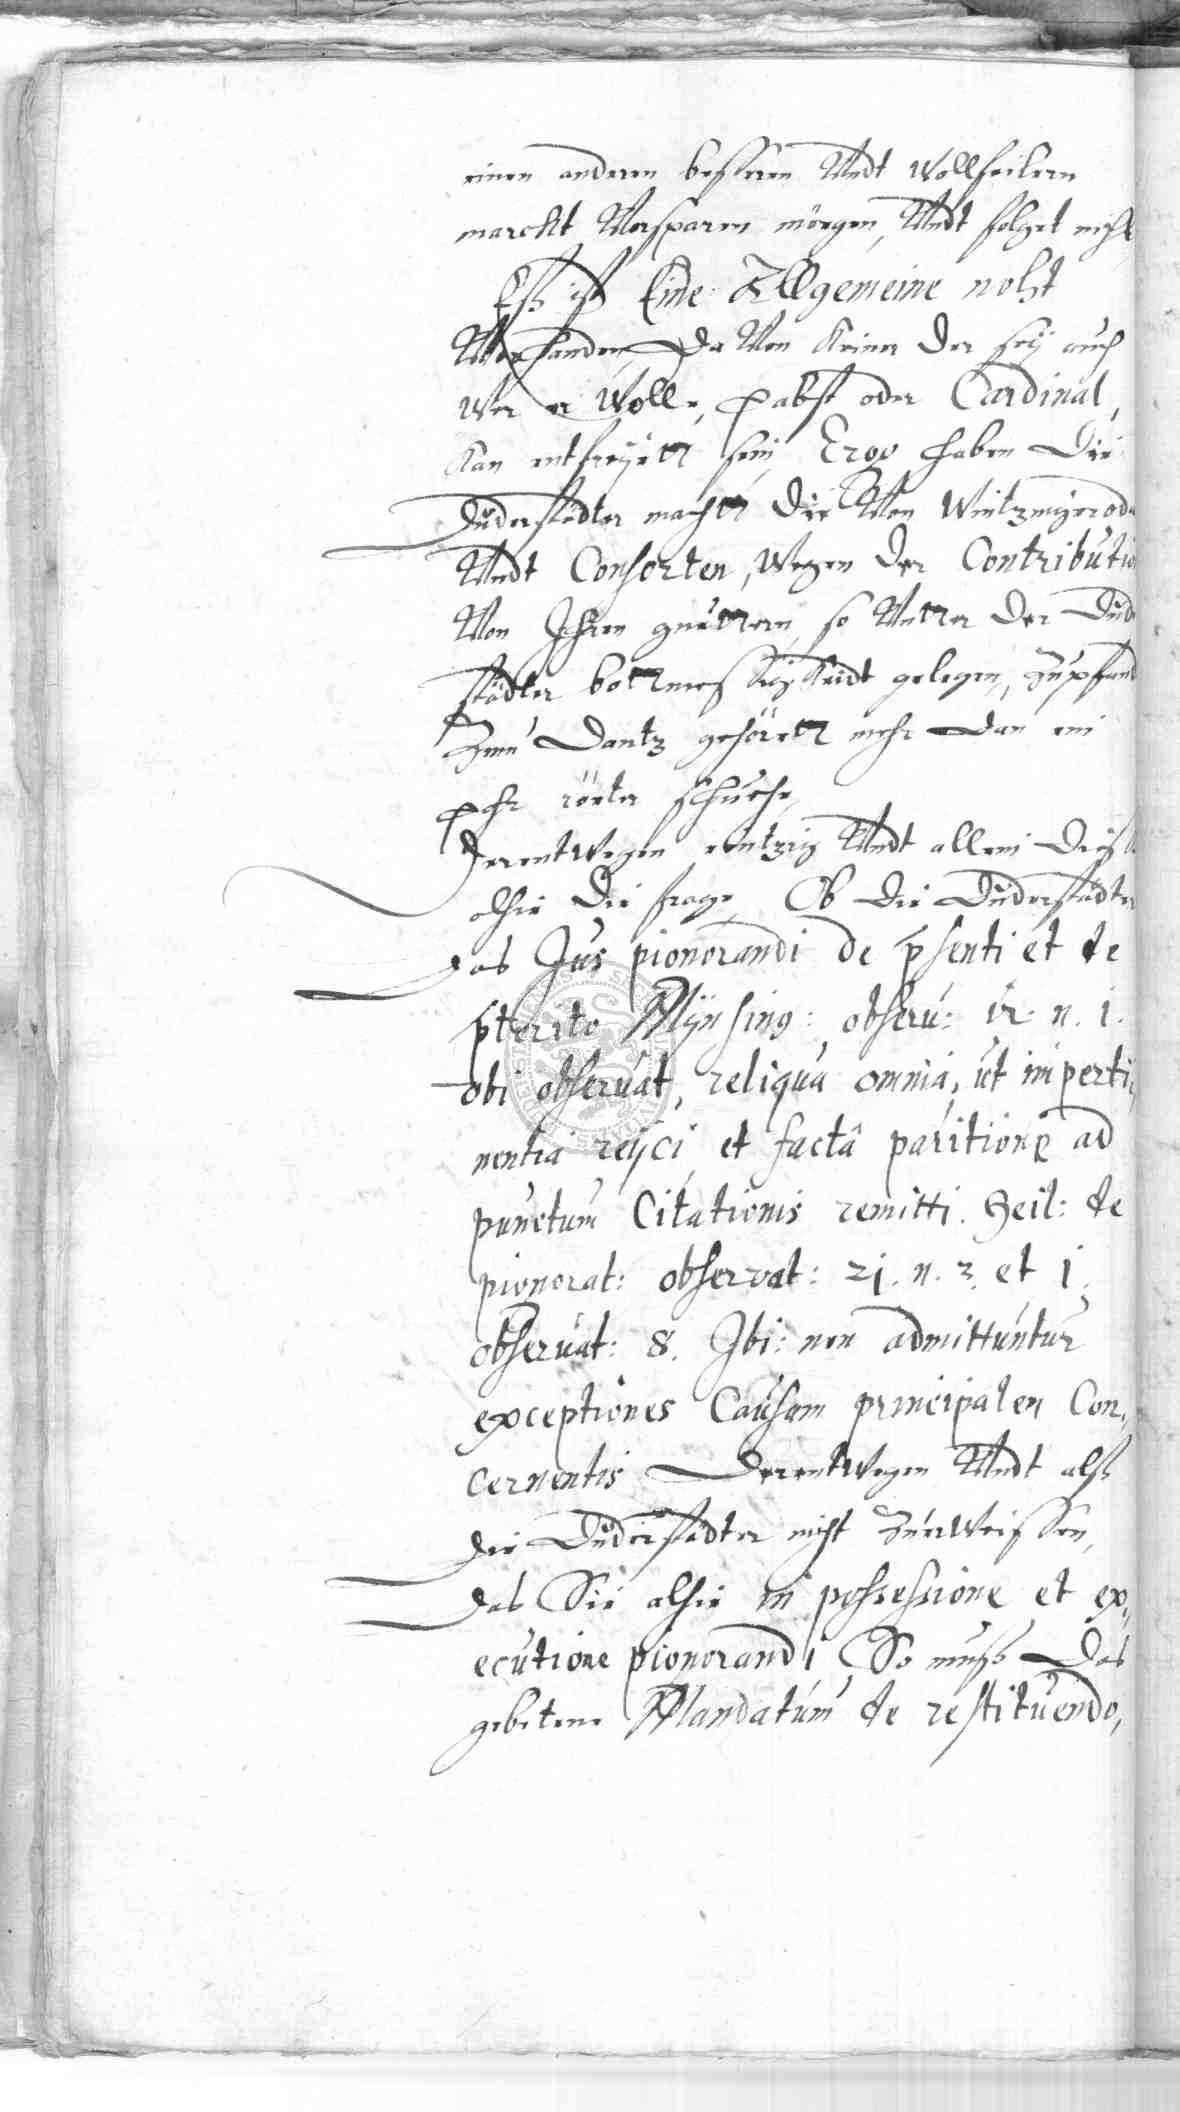 einen anderen besseren Undt Wollfeilern
marckt Versparen mögen, Undt folget nicht,
Eß ist Eine Allgemeine noht
Vorhanden, Da Von Keiner Der seÿ auch
Wer er Wolle, pabst oder Cardinal,
Kan entfreÿett sein, Ergo haben Die
Duderstädter macht Die Von Wintzingeroda
Undt Consorten, Wegen Der Contributio
Von Ihren guettern, so Unter Der Duder
städter bottmessigkeidt gelegen, zu pfand
Zum Dantz gehörtt mehr Dan ein
pahr röhte schuche,
Derentwegen eintzig Undt allein Dieß
alhie Die frage, Ob Die Duderstädter
Das Jus pignorandi de psenti et de
pterito Mÿnsing: obseru: n. 1.
obi obseruat, reliqua omnia, ut imperti,
nentia reijci, et facta paritione ad
punctum Citationis remitti. Geil: de
pignorat: observat: 21. n. 2. et 1.
obseruat: 8. Ibi: non admittuntur
exceptiones Causam principalen Con,
cernentis Derentwegen Undt alß
Die Duderstädter nicht Zuerweissen,
Das Sie alhie in possessione et ex,
ecutione pignorandi So muß Das
gebetene Mandatum de restituendo,